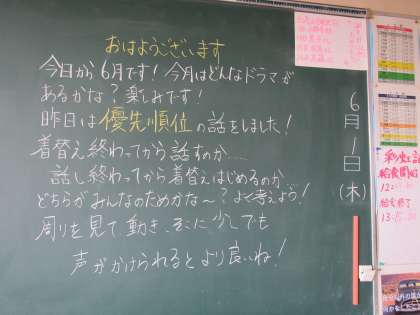 おはようございます
今日から6月です!今月はどんなドラマが
あるかな?楽しみです!
昨日は優先順位の話をしました!
着替え終わってから話すのか…
話し終わってから着替えはじめるのか
どちらがみんなのためかな〜?よく考えよう!
周りを見て動き、そこに少しでも
声がかけられるとより良いね!
6月1日(木)
給食開始
12:
給食終了